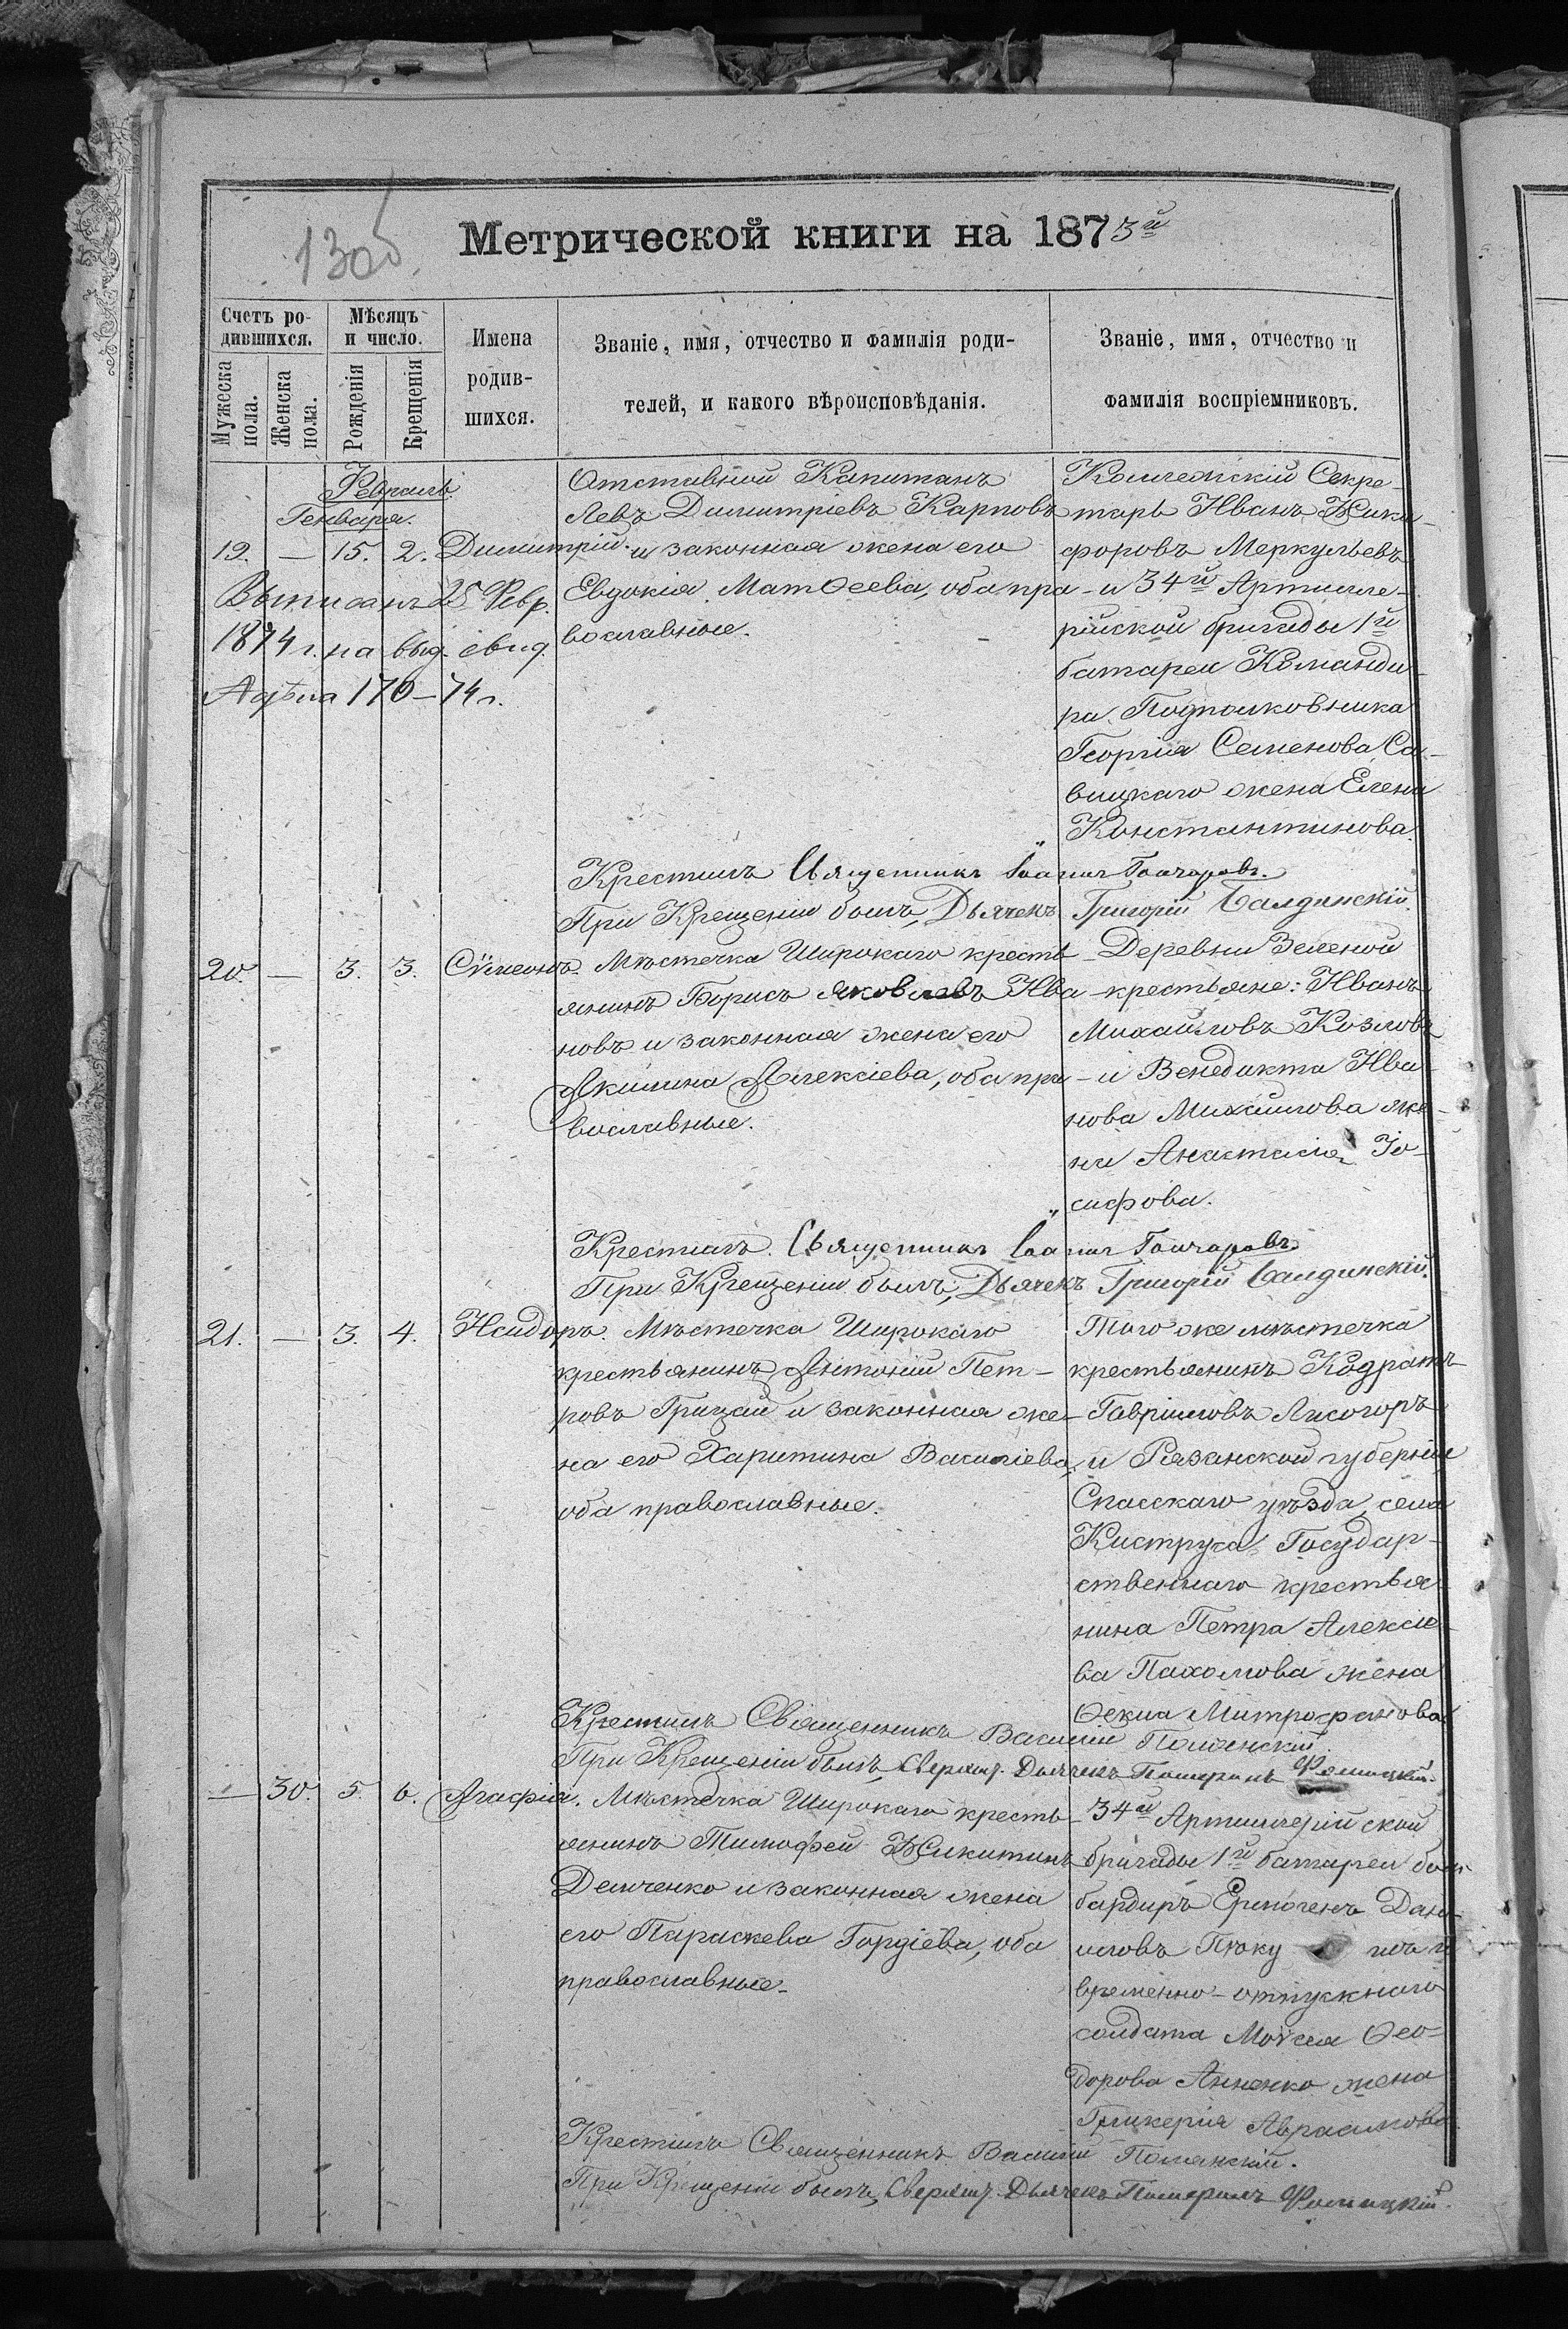 130б
Метрической книги на 1873й
Счетъ ро-
дившихся.
Мужеска
пола.
Женска
пола.
Мѣсяцъ
и число.
Рожденія
Крещенія
Имена
родив-
шихся.
Званіе, имя, отчество и фамилія роди-
телей, и какого вѣроисповѣданія.
Званіе, имя, отчество и
фамилія воспріемниковъ.
Февраль
Генваря.
19. — 15. 2. Димитрій.
Выписанъ 25 Февр.
1874 г. на выд. свид.
№ дѣла 170–74 г.
Отставной Капитанъ
Левъ Димитріевъ Карповъ
и законная жена его
Евдокія Матѳеева, оба пра-
вославные.
Коллежскій Секре-
тарь Иванъ Ники-
форовъ Меркульевъ
и 34й Артилле-
рійской бригады 1й
батареи Команди-
ра Подполковника
Георгія Семенова Са-
вицкаго жена Елена
Константинова.
Крестилъ Священникъ Іоаннъ Гончаровъ.
При Крещеніи былъ, Дьячекъ Григорій Балдинскій.
20. — 3. 3. Сѵмеонъ.
Мѣстечка Широкаго кресть-
янинъ Борисъ Яковлевъ Ива-
новъ и законная жена его
Акилина Алексіева, оба пра-
вославные.
Деревни Зеленой
крестьяне: Иванъ
Михайловъ Козловъ
и Венедикта Ива-
нова Михайлова же-
на Анастасія Іо-
сифова.
Крестилъ Священникъ Іоаннъ Гончаровъ.
При Крещеніи былъ, Дьячекъ Григорій Балдинскій.
21. — 3. 4. Исидоръ.
Мѣстечка Широкаго
крестьянинъ Антоній Пет-
ровъ Грицай и законная же-
на его Харитина Василіева,
оба православные.
Того же мѣстечка
крестьянинъ Кодратъ
Гавріиловъ Лисогоръ
и Рязанской губерніи
Спасскаго уѣзда, села
Киструса Государ-
ственнаго крестья-
нина Петра Алексіе-
ва Пахомова жена
Ѳекла Митрофанова
Крестилъ Священникъ Василій Полянскій.
При Крещеніи былъ, Сверхшт. Дьячекъ
— 30. 5. 6. Агафія.
Мѣстечка Широкаго кресть-
янинъ Тимофей Никитинъ
Демченко и законная жена
его Параскева Гордіева, оба
православные.
34й Артиллерійской
бригады 1й батареи бом-
бардиръ Ермогенъ Дани-
иловъ
временно-отпускнаго
солдата Моѵсея Ѳео-
дорова Анненко жена
Гликерія Авраамова
Крестилъ Священникъ Василій Полянскій.
При Крещеніи былъ, Сверхшт. Дьячекъ